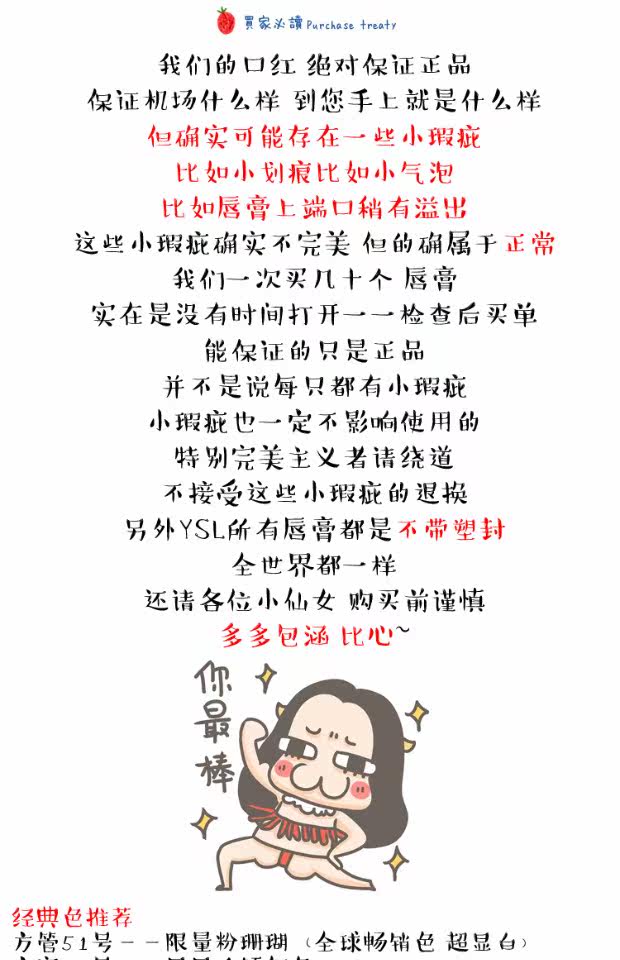 買家必讀 Purchase treaty
我们的口红 绝对保证正品
保证机场什么样 到您手上就是什么样
但确实可能存在一些小瑕疵
比如小划痕比如小气泡
比如唇膏上端口稍有溢出
这些小瑕疵确实不完美 但的确属于正常
我们一次买几十个 唇膏
实在是没有时间打开一一检查后买单
能保证的只是正品
并不是说每只都有小瑕疵
小瑕疵也一定不影响使用的
特别完美主义者请绕道
不接受这些小瑕疵的退换
另外YSL所有唇膏都是不带塑封
全世界都一样
还请各位小仙女 购买前谨慎
多多包涵 比心~
你最棒
经典色推荐
方管51号--限量粉珊瑚 (全球畅销色 超显白)